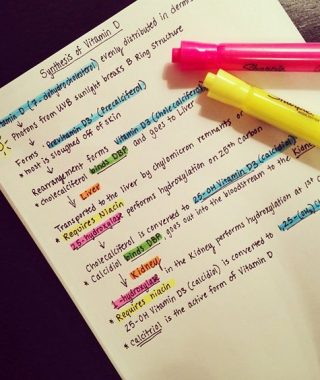 Synthesis of Vitamin D
Vitamin D (7-dehydrocholesterol) evenly distributed in dermis
↓ Photons from UVB sunlight breaks B Ring structure
Forms Previtamin D3 (Precalciferol)
* most is sloughed off of skin
Rearrangement forms Vitamin D3 (cholecalciferol)
* cholecalciferol binds DBP and goes to liver
↓ Liver
Transported to the liver by chylomicron remnants or
* Requires Niacin
25-hydroxylase performs hydroxylation on 25th Carbon
↓
Cholecalciferol is converted to 25-OH Vitamin D3 (calcidiol)
* Calcidiol binds DBP goes out into the bloodstream to the Kidney
↓ Kidney
1-hydroxylase in the Kidney performs hydroxylation at 1st
* Requires niacin
25-OH Vitamin D3 (calcidiol) is converted to
* calcitriol is the active form of Vitamin D
Sharpie